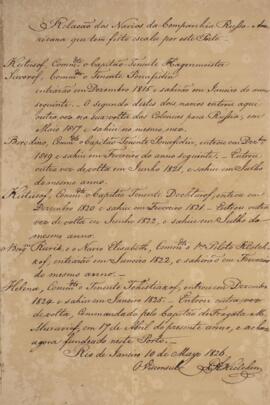 Relação dos Navios da Companhia Russo-Ame-
ricana que tem feito escala por este Porto
Kutusof, Comm.te o Capitão Tenente Hagenmeister
Suvorof, Comm.te o Tenente Ponafidin
entrárão em Dezembro 1815 e sahirão em Janeiro do anno
seguinte. O segundo destes dois navios entrou aqui
outra vez na sua volta das Colonias para Russia, em
Maio 1817 e sahiu no mesmo mez.
Borodino, Comm.te o Capitão Tenente Ponafidin, entrou em Dez.bro
1819 e sahiu em Fevereiro do anno seguinte. Entrou
outra vez de volta em Junho 1821, e sahiu em Julho
do mesmo anno.
Kutusof, Comm.te o Capitão Tenente Dochturof, entrou em
Dezembro 1820 e sahiu em Fevereiro 1821. Entrou outra
vez de volta em Junho 1822, e sahiu em Julho do
mesmo anno.
o Brig. Rurik, e o Navio Elisabeth, Comm.te 1.º Piloto Klotch-
kof, entrárão em Janeiro 1822, e sahirão em Fevereiro
do mesmo anno.
Helena, Comm.te o Tenente Tchistiakof, entrou em Dezembro
1824 e sahiu em Janeiro 1825. Entrou outra vez
de volta, Commandado pelo Capitão de Fragata M.
Muravief, em 17 de Abril do presente anno, e acha-se
agora fundeado neste Porto.
Rio de Janeiro 10 de Março 1826
O Viceconsul Kielchen